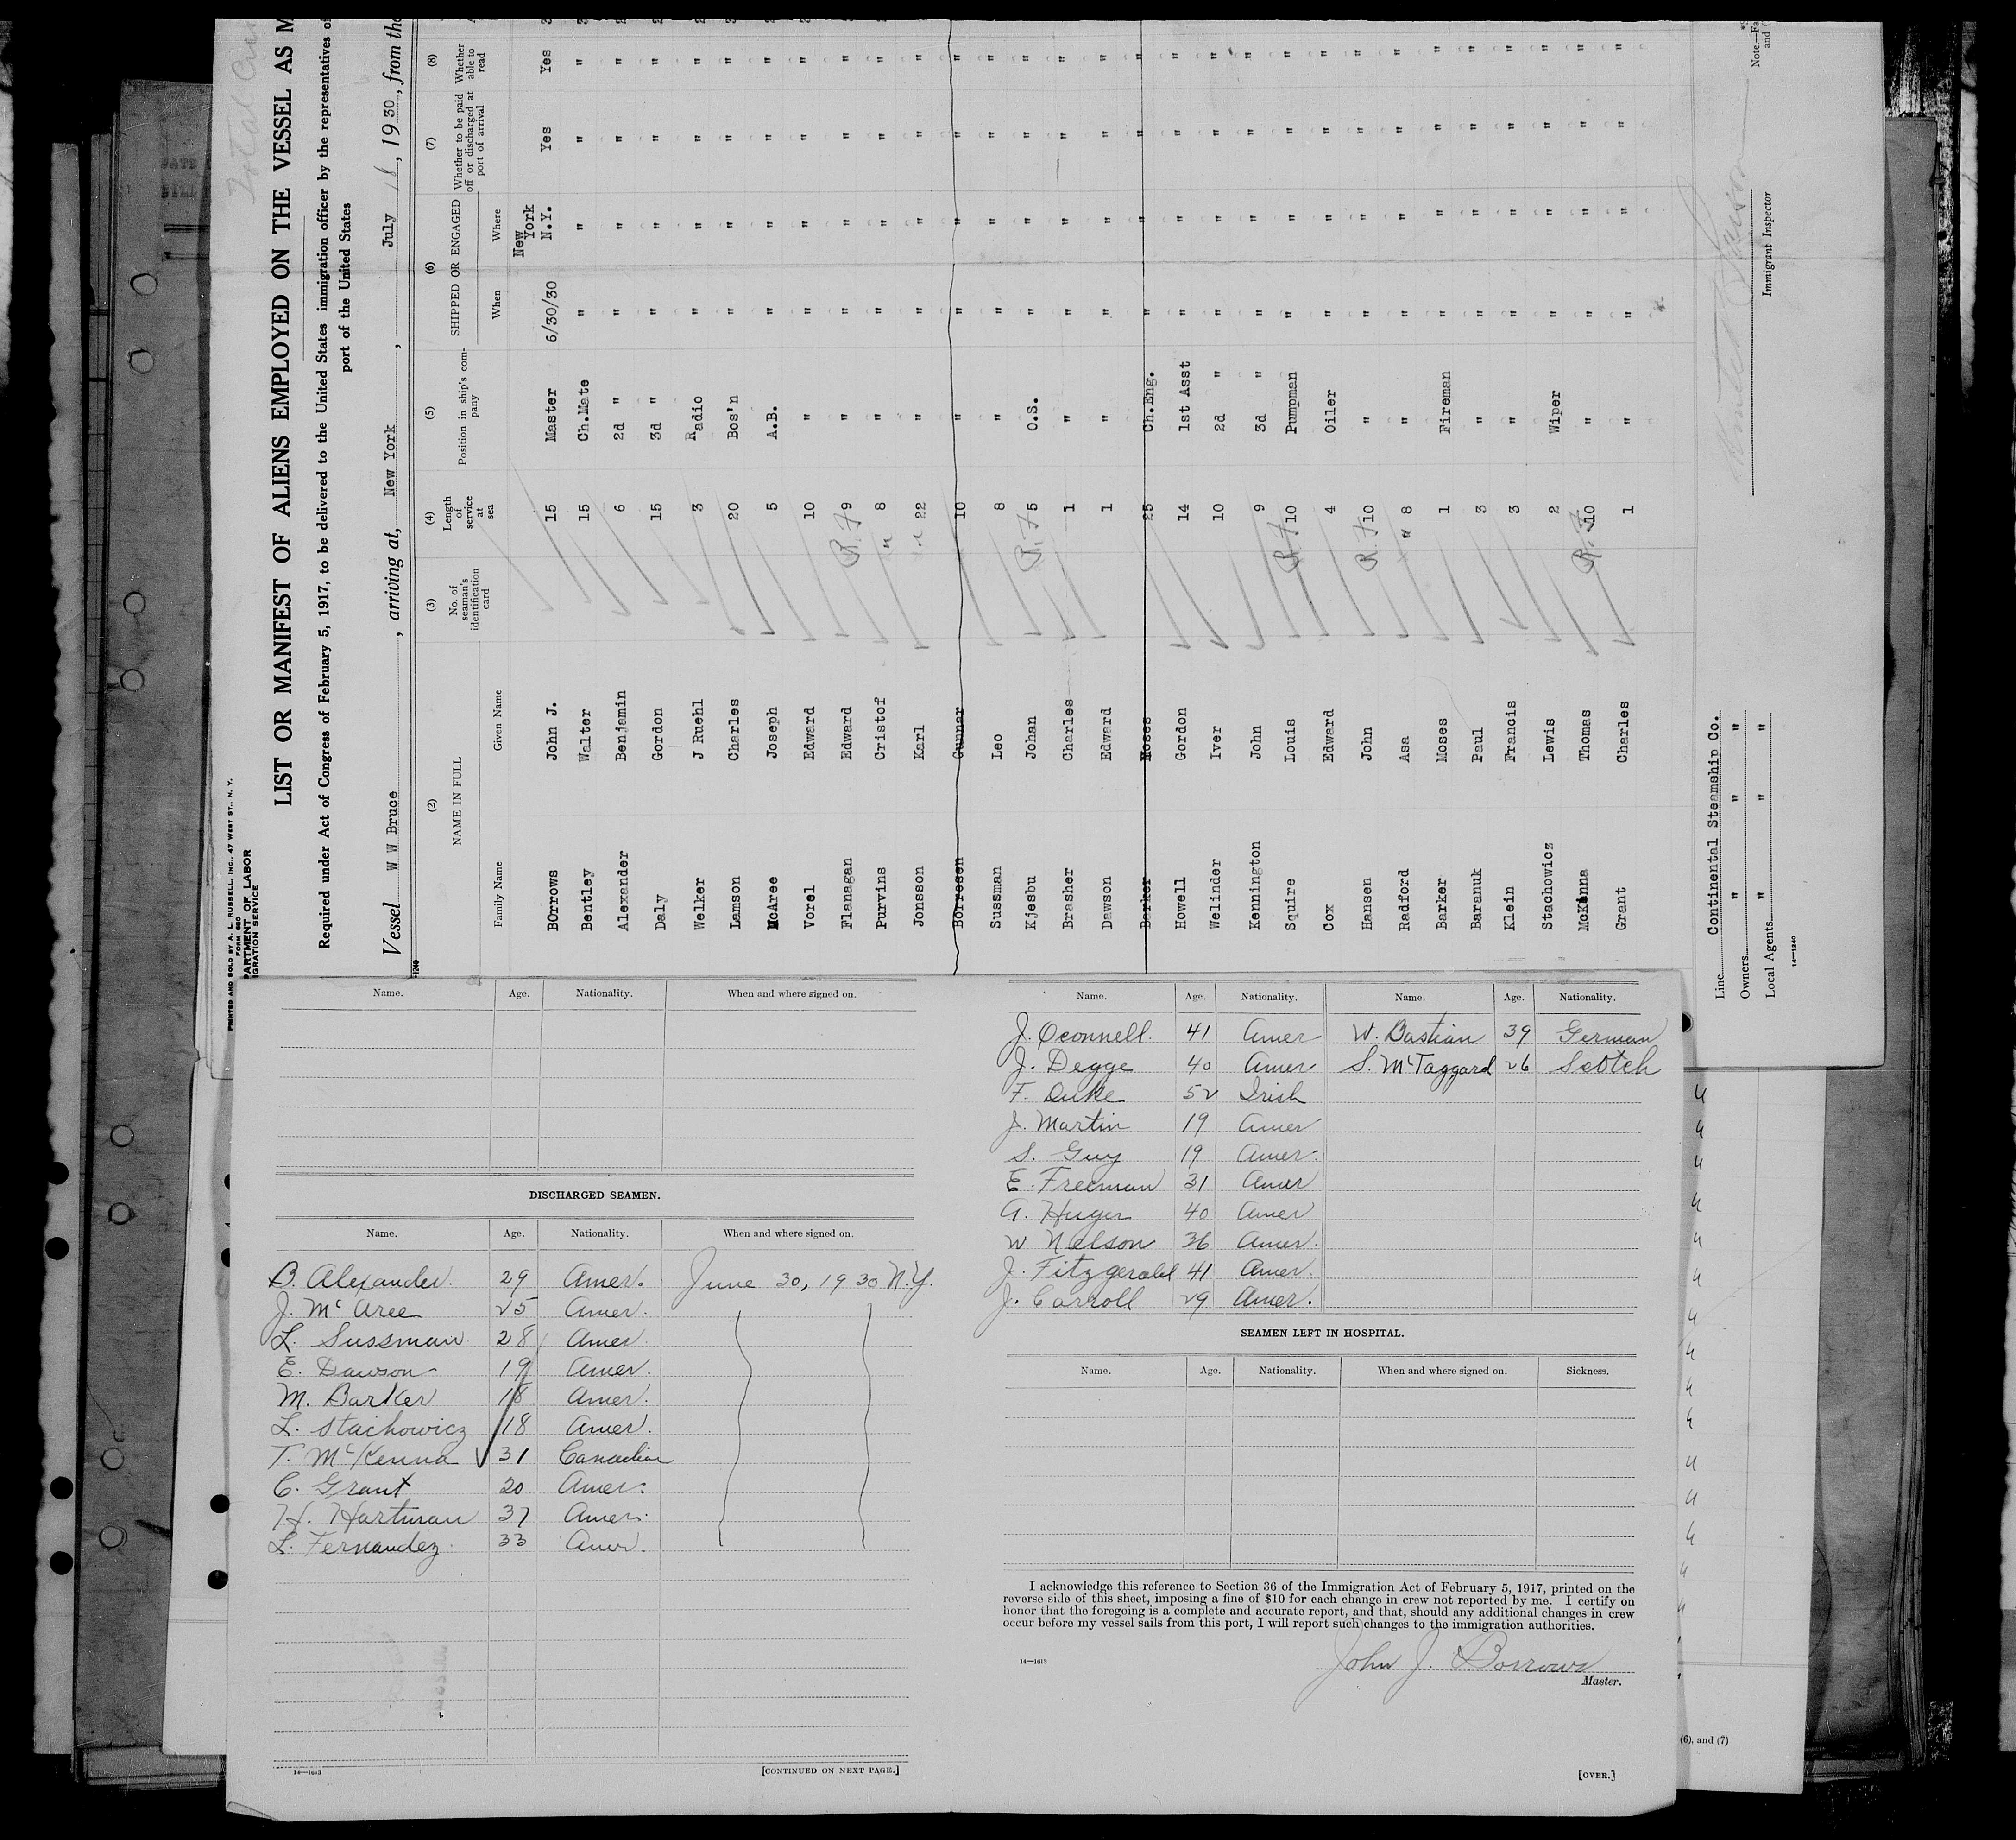 PRINTED AND SOLD BY A. L. RUSSELL, INC., 47 WEST ST., N. Y.
FORM 680
PARTMENT OF LABOR
IGRATION SERVICE
LIST OR MANIFEST OF ALIENS EMPLOYED ON THE VESSEL AS M
Required under Act of Congress of February 5, 1917, to be delivered to the United States immigration officer by the representatives of
port of the United States
Vessel W W Bruce, arriving at, New York, July 16, 1930, from the
(2) (3) (4) (5) (6) (7) (8)
NAME IN FULL No. of seaman's identification card Length of service at sea Position in ship's company SHIPPED OR ENGAGED Whether to be paid off or discharged at port of arrival Whether able to read
Family Name Given Name When Where
BOrrows John J. 15 Master 6/30/30 New York N.Y. Yes Yes
Bentley Walter 15 Ch.Mate " " " "
Alexander Benjamin 6 2d " " " " "
Daly Gordon 15 3d " " " " "
Welker J Ruehl 3 Radio " " " "
Lamson Charles 20 Bos'n " " " "
McAree Joseph 5 A.B. " " " "
Vorel Edward 10 " " " " "
Flanagan Edward R.F 9 " " " " "
Purvins Cristof " 8 " " " " "
Jonsson Karl " 22 " " " " "
Borresen Gunnar 10 " " " " "
Sussman Leo 8 " " " " "
Kjesbu Johan R.F 5 O.S. " " " "
Brasher Charles 1 " " " " "
Dawson Edward 1 " " " " "
Barker Moses 25 Ch.Eng. " " " "
Howell Gordon 14 1st Asst " " " "
Welinder Iver 10 2d " " " " "
Kennington John 9 3d " " " " "
Squire Louis R.F 10 Pumpman " " " "
Cox Edward 4 Oiler " " " "
Hansen John R.F 10 " " " " "
Radford Asa " 8 " " " " "
Barker Moses 1 Fireman " " " "
Baranuk Paul 3 " " " " "
Klein Francis 3 " " " " "
Stachowicz Lewis 2 Wiper " " " "
McKenna Thomas R.F 10 " " " " "
Grant Charles 1 " " " " "
Line Continental Steamship Co.
Owners " " "
Local Agents " " "
14—1240
Immigrant Inspector
Note.—Fa
and (
Name. Age. Nationality. When and where signed on.
DISCHARGED SEAMEN.
Name. Age. Nationality. When and where signed on.
B. Alexander. 29 Amer. June 30, 1930 N.Y.
J. McAree 25 Amer.
L. Sussman 28 Amer.
E. Dawson 19 Amer.
M. Barker 18 Amer.
L. Stachowicz 18 Amer.
T. McKenna 31 Canadian
C. Grant 20 Amer.
H. Hartman 37 Amer.
L. Fernandez. 33 Amer.
14—1613
[CONTINUED ON NEXT PAGE.]
Name. Age. Nationality. Name. Age. Nationality.
J. Oconnell. 41 Amer W. Bastian 39 German
J. Degge 40 Amer S. McTaggard 26 Scotch
F. Duke 52 Irish
J. Martin 19 Amer
S. Guy 19 Amer.
E. Freeman 31 Amer
A. Huger 40 Amer
W Nelson 36 Amer.
J. Fitzgerald 41 Amer.
J. Carroll 29 Amer.
SEAMEN LEFT IN HOSPITAL.
Name. Age. Nationality. When and where signed on. Sickness.
I acknowledge this reference to Section 36 of the Immigration Act of February 5, 1917, printed on the
reverse side of this sheet, imposing a fine of $10 for each change in crew not reported by me. I certify on
honor that the foregoing is a complete and accurate report, and that, should any additional changes in crew
occur before my vessel sails from this port, I will report such changes to the immigration authorities.
14—1613
John J. Borrows
Master.
[OVER.]
(6), and (7)